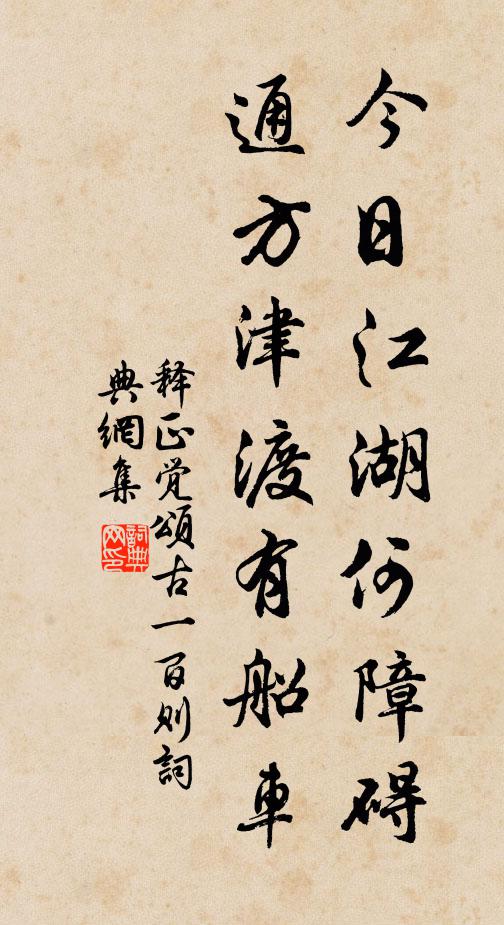 今日江湖何障碍
通方津渡有船车
释正觉颂古一百则词
典網集
詞典网印